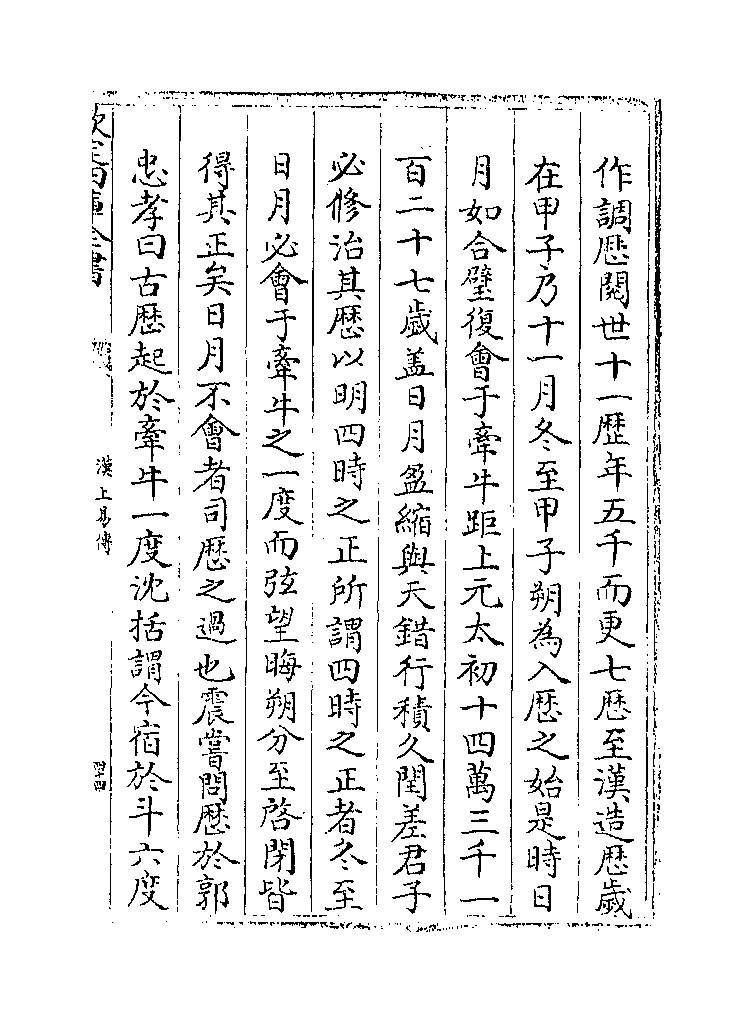 作調厯閱世十一歴年五千而更七厯至漢造厯歲
在甲子乃十一月冬至甲子朔為入厯之始是時日
月如合璧復會于牽牛距上元太初十四萬三千一
百二十七歲盖日月盈縮與天錯行積久閏差君子
必修治其厯以明四時之正所謂四時之正者冬至
日月必會于牽牛之一度而弦望晦朔分至啓閉皆
得其正矣日月不會者司厯之過也震嘗問厯於郭
忠孝曰古厯起於牽牛一度沈括謂今宿於斗六度
欽定四庫全書
漢上易傳
四十四